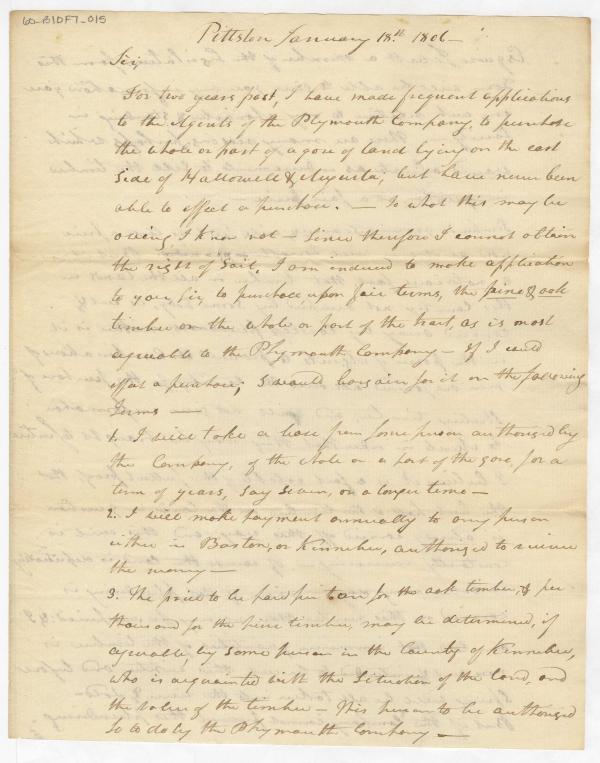 60-B1DF7-015
Pittston January 18th 1806 —
Sir,
For two years past, I have made frequent applications
to the Agents of the Plymouth Company, to purchase
the whole or part of a gore of land lying on the east
side of Hallowell & Augusta; but have never been
able to effect a purchase. — To what this may be
owing I know not — Since therefore I cannot obtain
the right of Soil, I am induced to make application
to you, Sir, to purchase upon fair terms, the pine & oak
timber on the whole or part of the tract, as is most
agreeable to the Plymouth Company — If I could
effect a purchase; I would bargain for it on the following
terms —
1. I will take a lease from some person authorised by
the Company, of the whole or a part of the gore, for a
term of years, say seven, or a longer time —
2. I will make payment annually to any person
either in Boston, or Kinnebec, authorised to receive
the money —
3. The price to be paid per ton for the oak timber, & per
thousand for the pine timber, may be determined, if
agreeable, by some person in the County of Kinnebec,
who is acquainted with the situation of the land, and
the value of the timber — This person to be authorised
so to do by the Plymouth Company —